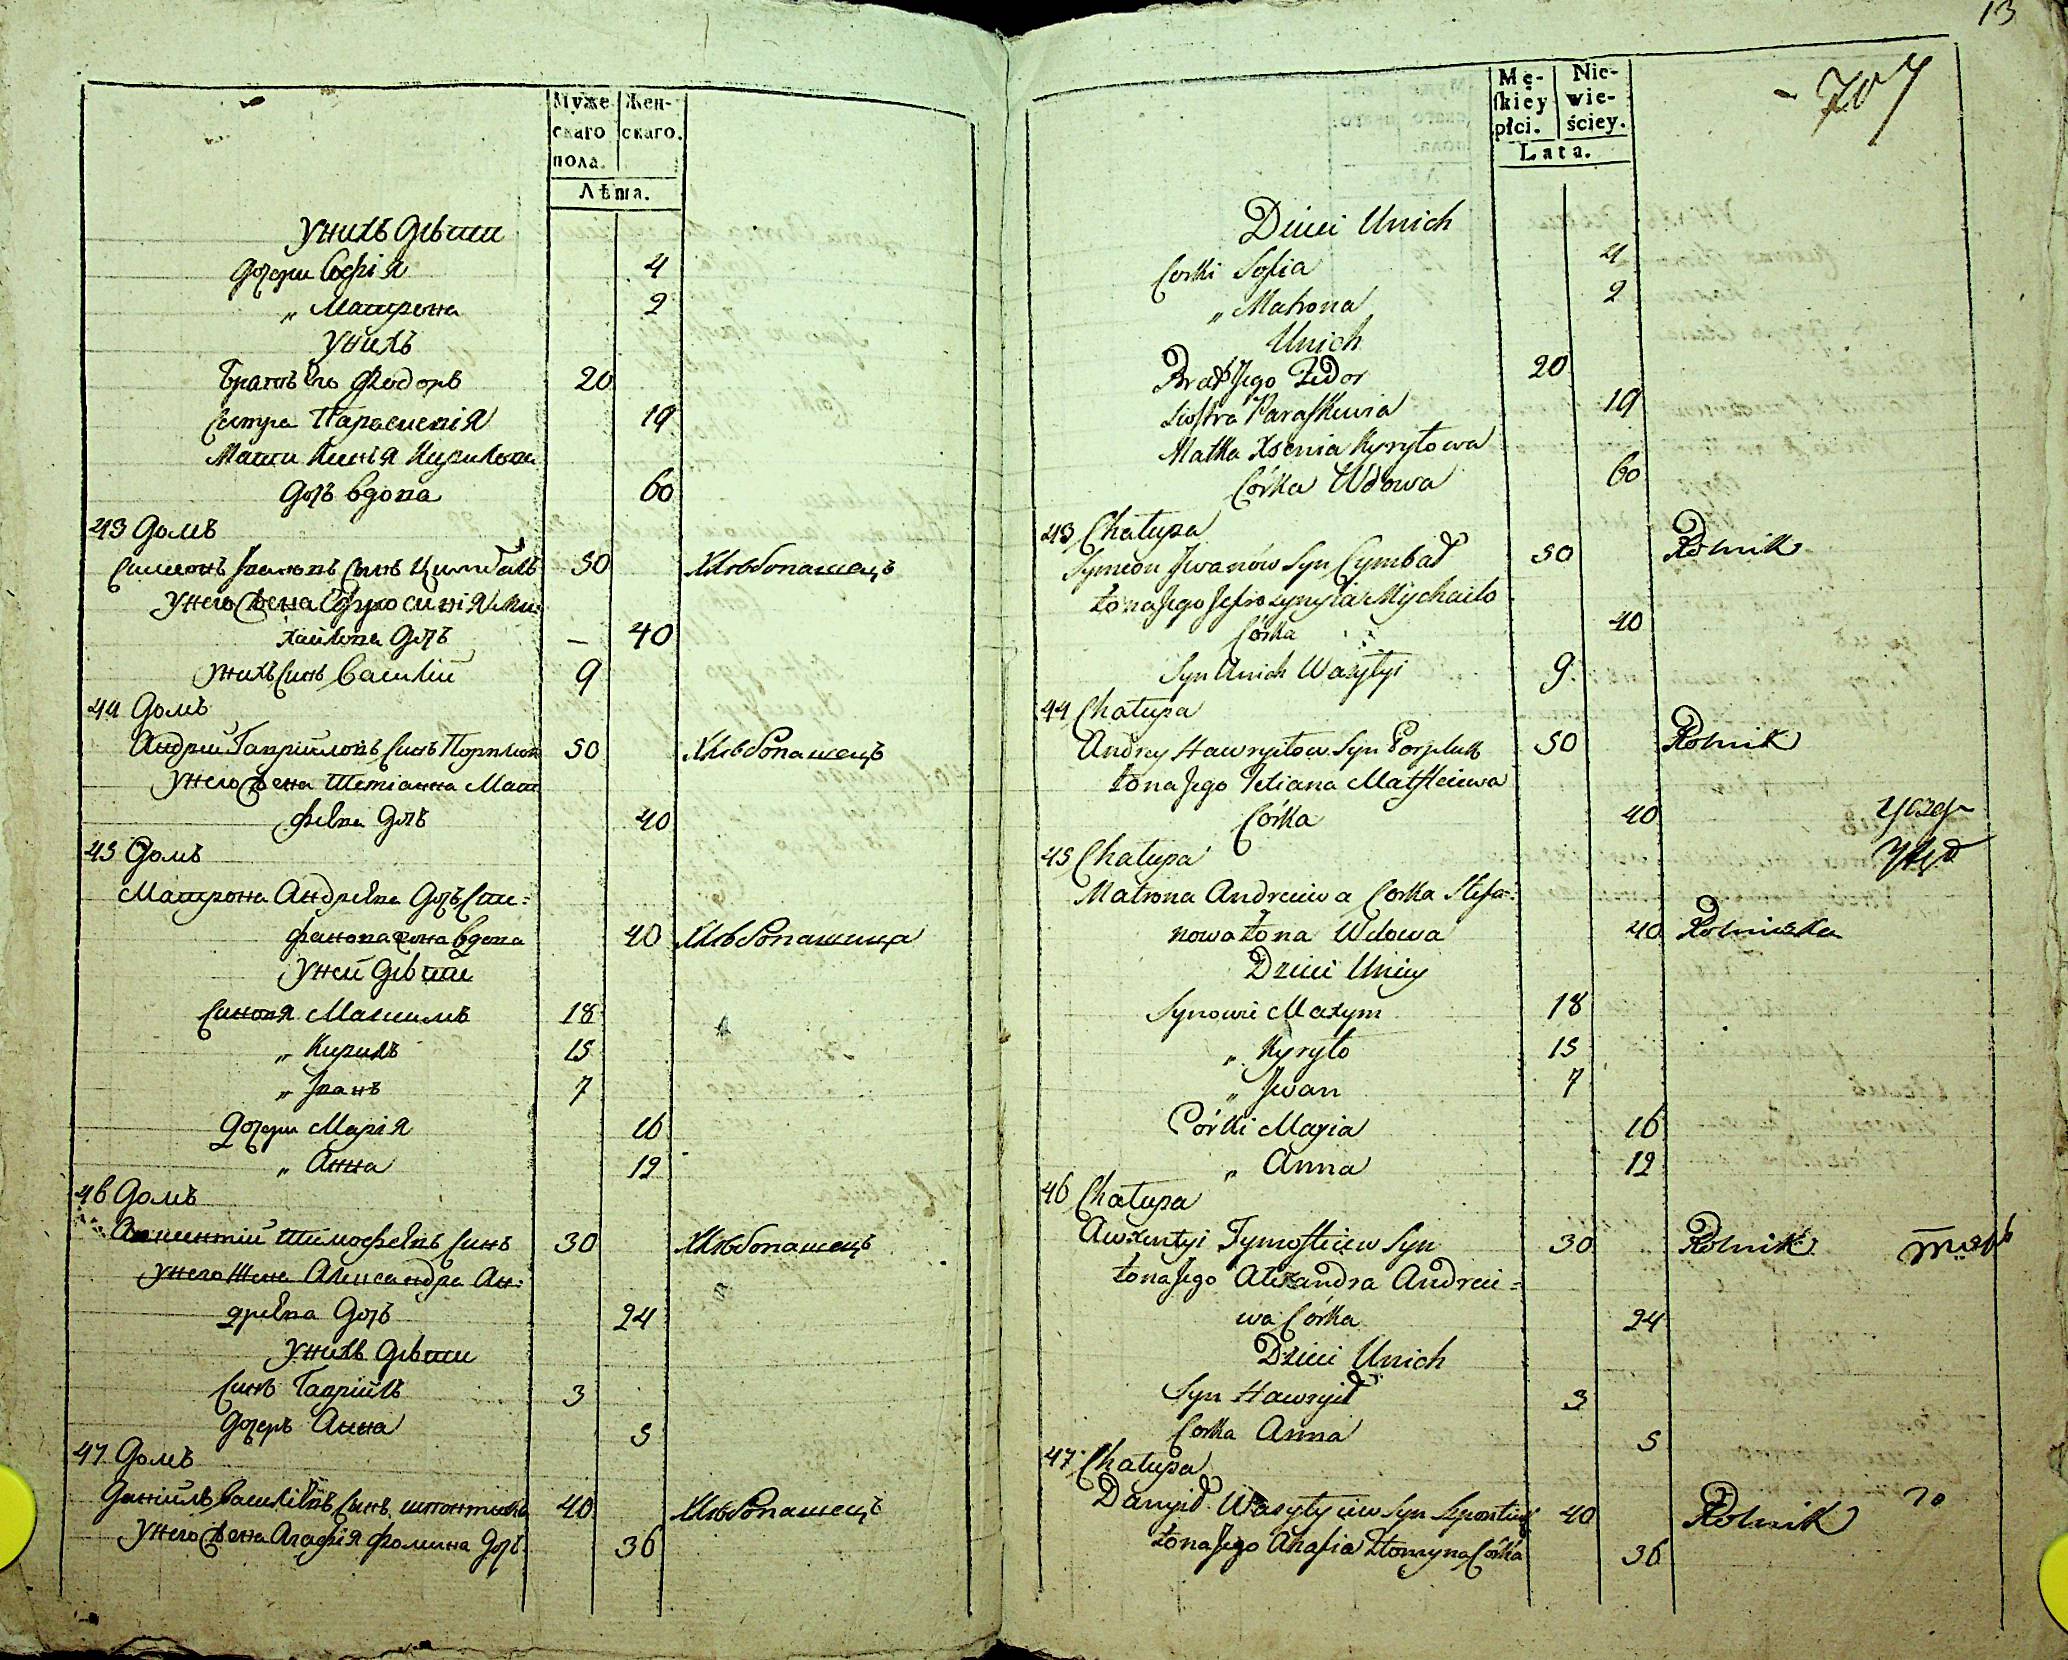 Муже Жен-
скаго скаго.
пола.
Лѣта.
Унихъ Дѣти
Дочери Софія 4
„ Матрона 2
Унихъ
Братъ его Федоръ 20
Сестра Параскевія 19
Мати Ксенія Кирилова
Дочь вдова 60
43 Домъ
Симеонъ Івановъ Синъ Цимбалъ 50 Хлѣбопашецъ
Унего Жена Єфросинія Ми-
хайлова Дочь — 40
Унихъ Синъ Василій 9
44 Домъ
Андрій Гавріиловъ Синъ 50 Хлѣбопашецъ
Унего Жена Тетіанна Мат
феева Дочь 40
45 Домъ
Матрона Андреева Дочь Сте=
фанова жена вдова 40 Хлѣбопашица
Уней Дѣти
Синовя Максимъ 18
„ Кирилъ 15
„ Іванъ 7
Дочери Марія 16
„ Анна 12
46 Домъ
Авксентій Тимофеевъ Синъ 30 Хлѣбопашецъ
Унего Жена Александра Ан=
дреева Дочь 24
Унихъ Дѣти
Синъ Гавріилъ 3
Дочерь Анна 5
47 Домъ
Даніилъ Василіевъ Синъ 40 Хлѣбопашецъ
Унего Жена Агафія Фомина Дочь 36
13
707
Mę- Nie-
skiey wie-
płci. ściey.
Lata.
Dzieci Unich
Corki Sofia 4
„ Matrona 2
Unich
Brat Jego Fedor 20
Siostra Paraskewia 19
Matka Xsenia Kyryłowa
Córka Wdowa 60
43 Chałupa
Symeon Jwanów Syn Cymbał 50 Rolnik
Żona Jego Jefrosynyia Mychaiło
Córka 40
Syn Unich Wasylyi 9
44 Chałupa
Andrey Hawryłow Syn 50 Rolnik
Żona Jego Tetiana Matfteiewa
Córka 40
45 Chałupa
Matrona Andreiewa Corka Stefa=
nowa Żona Wdowa 40 Rolniczka
Dzieci Uniey
Synowie Maxym 18
„ Kyryło 15
„ Jwan 7
Córki Marja 16
„ Anna 12
46 Chałupa
Awxentyi Tymofteiew Syn 30 Rolnik
Żona Jego Alexandra Andreie=
wa Córka 24
Dzieci Unich
Syn Hawryił 3
Corka Anna 5
47 Chałupa
Danyił Wasylyiew Syn 40 Rolnik
Żona Jego Ahafia Córka 36